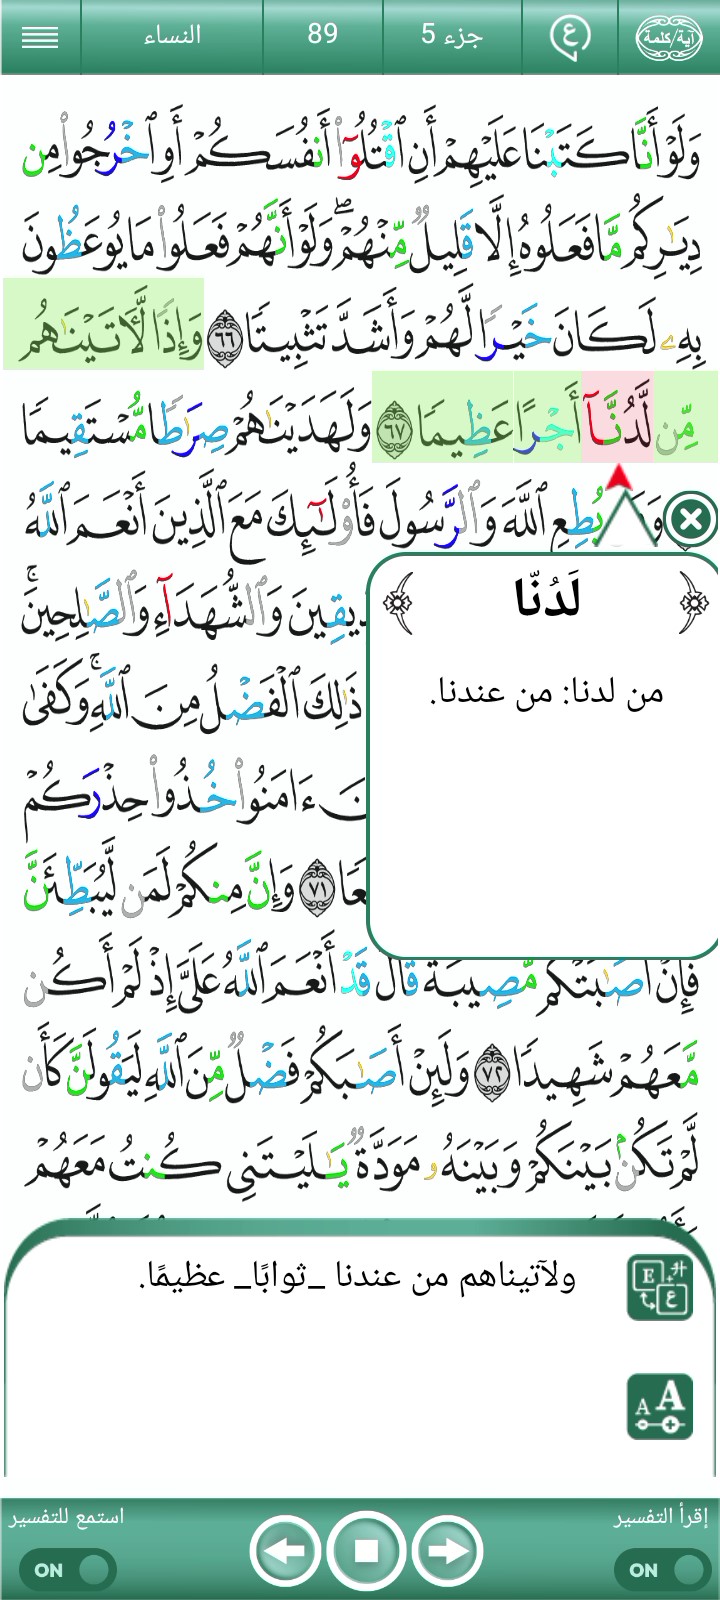 آية/كلمة
ع
جزء 5
89
النساء
وَلَوْ أَنَّا كَتَبْنَا عَلَيْهِمْ أَنِ ٱقْتُلُوٓا۟ أَنفُسَكُمْ أَوِ ٱخْرُجُوا۟ مِن
دِيَـٰرِكُم مَّا فَعَلُوهُ إِلَّا قَلِيلٌ مِّنْهُمْ ۖ وَلَوْ أَنَّهُمْ فَعَلُوا۟ مَا يُوعَظُونَ
بِهِۦ لَكَانَ خَيْرًا لَّهُمْ وَأَشَدَّ تَثْبِيتًا ٦٦ وَإِذًا لَّـَٔاتَيْنَـٰهُم
مِّن لَّدُنَّآ أَجْرًا عَظِيمًا ٦٧ وَلَهَدَيْنَـٰهُمْ صِرَٰطًا مُّسْتَقِيمًا
يُطِعِ ٱللَّهَ وَٱلرَّسُولَ فَأُو۟لَـٰٓئِكَ مَعَ ٱلَّذِينَ أَنْعَمَ ٱللَّهُ
وَٱلشُّهَدَآءِ وَٱلصَّـٰلِحِينَ ۚ
ذَٰلِكَ ٱلْفَضْلُ مِنَ ٱللَّهِ ۚ وَكَفَىٰ
ءَامَنُوا۟ خُذُوا۟ حِذْرَكُمْ
٧١ وَإِنَّ مِنكُمْ لَمَن لَّيُبَطِّئَنَّ
فَإِنْ أَصَـٰبَتْكُم مُّصِيبَةٌ قَالَ قَدْ أَنْعَمَ ٱللَّهُ عَلَىَّ إِذْ لَمْ أَكُن
مَّعَهُمْ شَهِيدًا ٧٢ وَلَئِنْ أَصَـٰبَكُمْ فَضْلٌ مِّنَ ٱللَّهِ لَيَقُولَنَّ كَأَن
لَّمْ تَكُنۢ بَيْنَكُمْ وَبَيْنَهُۥ مَوَدَّةٌ يَـٰلَيْتَنِى كُنتُ مَعَهُمْ
﴿ لَدُنّا ﴾
من لدنا: من عندنا.
ولآتيناهم من عندنا _ثوابًا_ عظيمًا.
E
ع
A A
إقرأ التفسير
استمع للتفسير
ON
ON